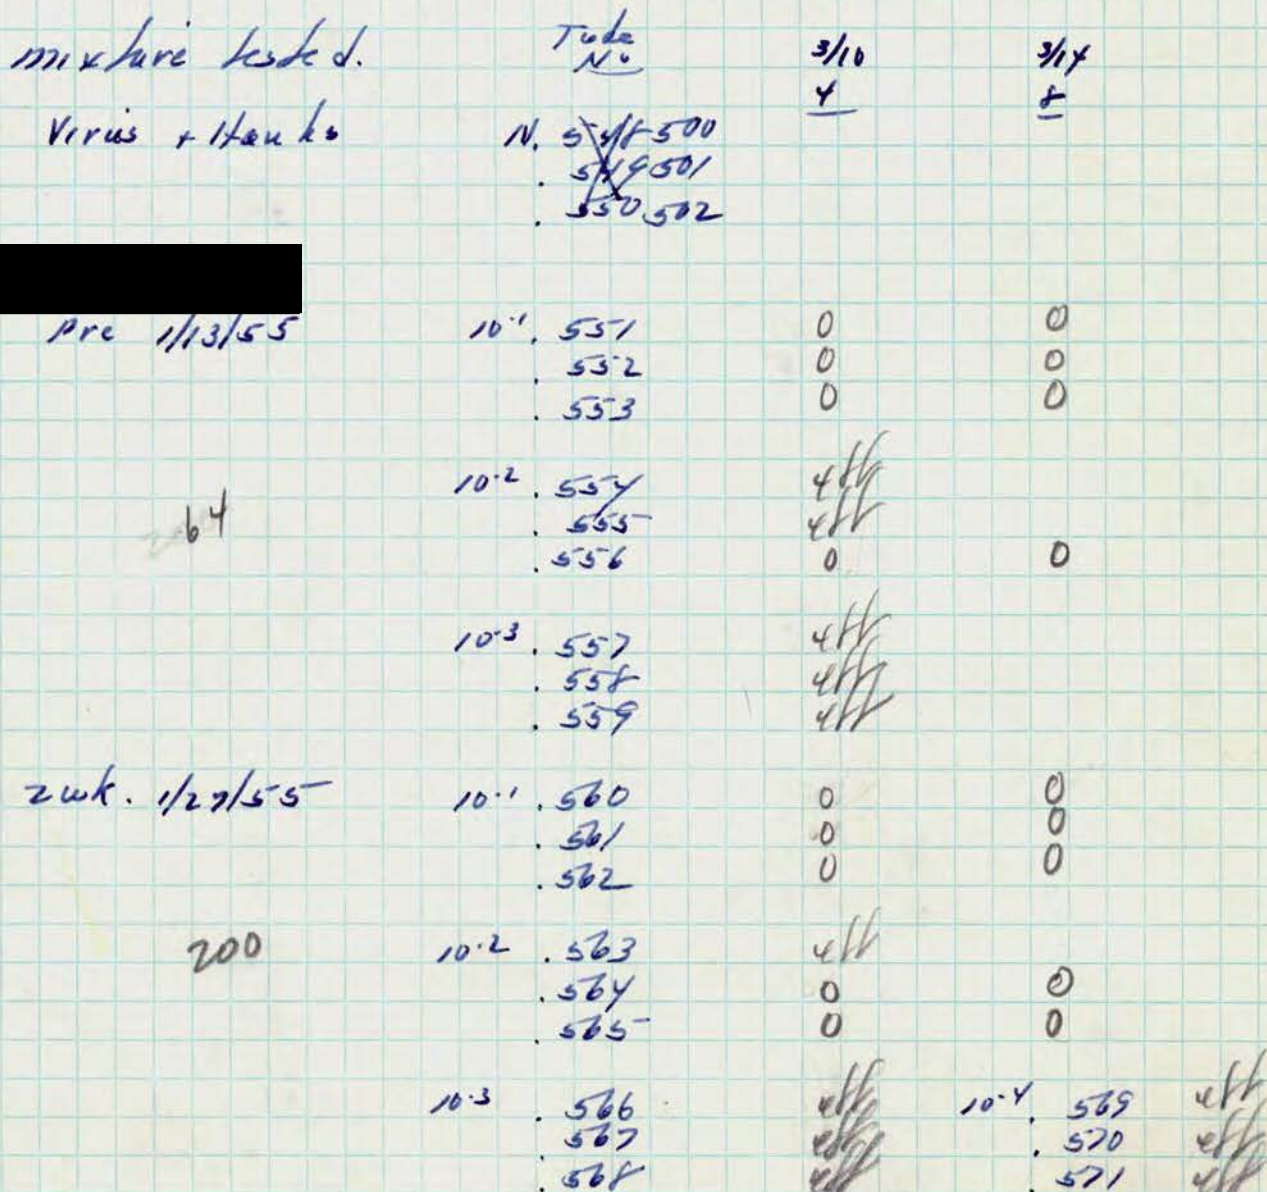 mixture tested. Tube No 3/10 3/14
4 8
Virus + Hanks N. 548 500
. 549 501
. 550 502
Pre 1/13/55 10-1 . 551 0 0
. 552 0 0
. 553 0 0
10-2 . 554 4
64 . 555 4
. 556 0 0
10-3 . 557 4
. 558 4
. 559 4
2wk. 1/27/55 10-1 . 560 0 0
. 561 0 0
. 562 0 0
200 10-2 . 563 4
. 564 0 0
. 565 0 0
10-3 . 566 4 10-4 . 569 4
. 567 4 . 570 4
. 568 4 . 571 4